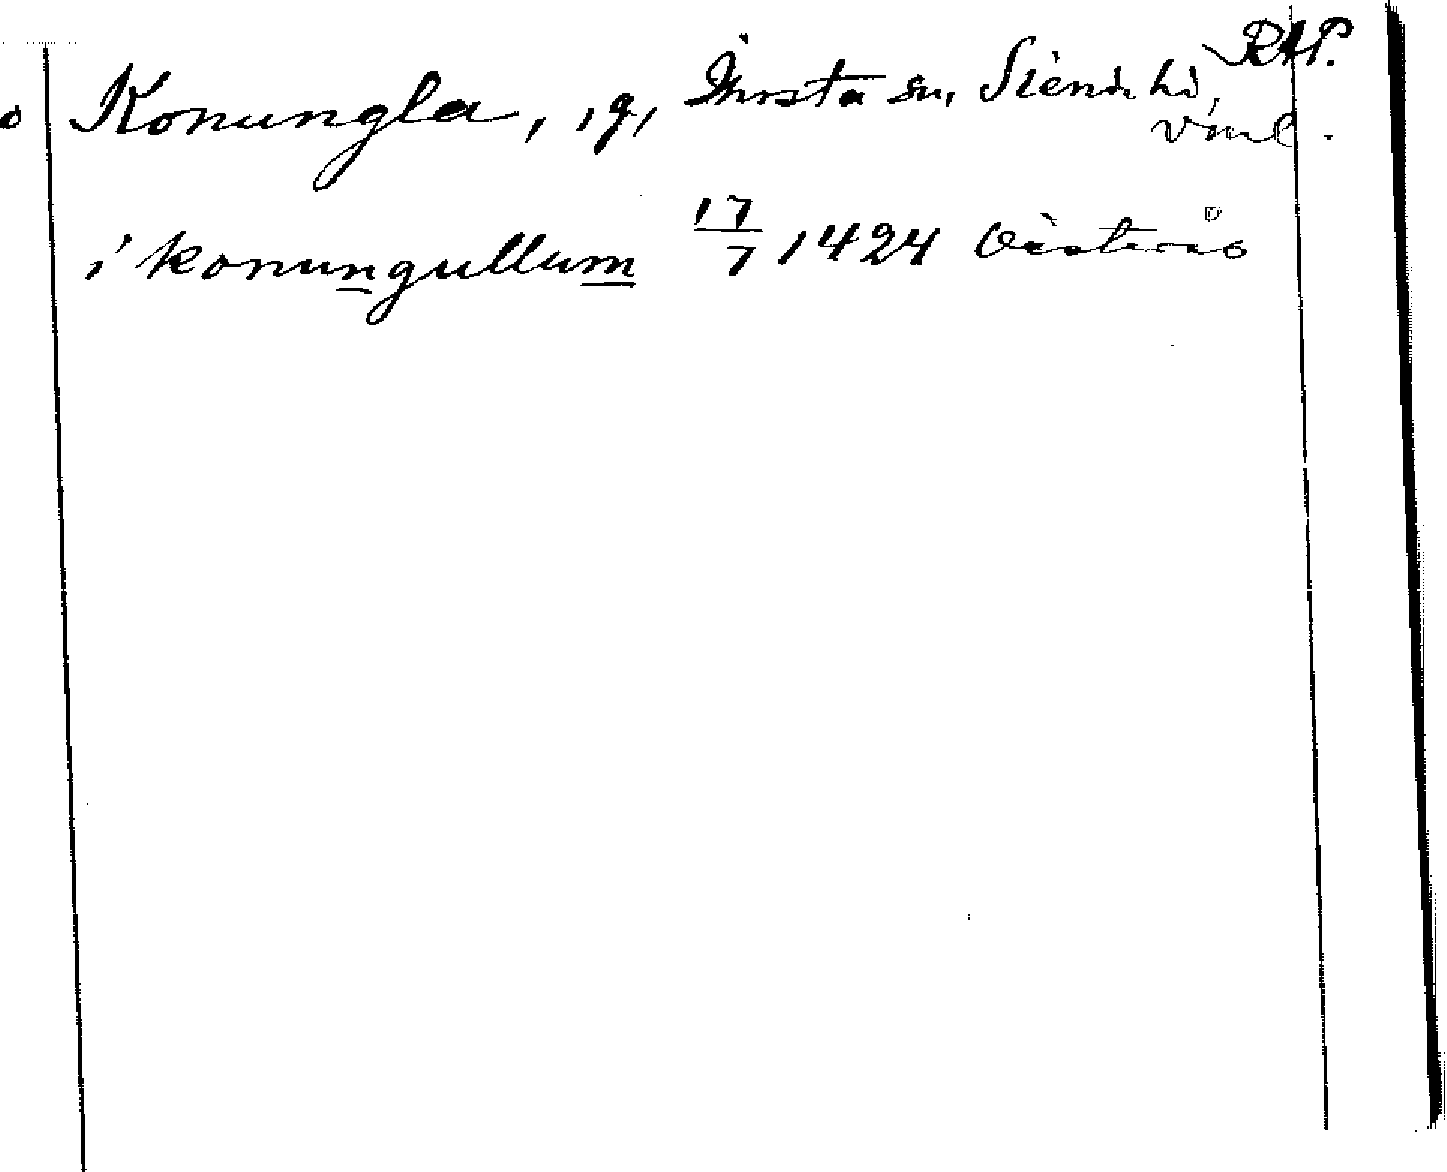 RAP.
Konungla, ,g, Irsta sn, Siende hd,
Vml.
i konungullum 17/7 1424 Västerås